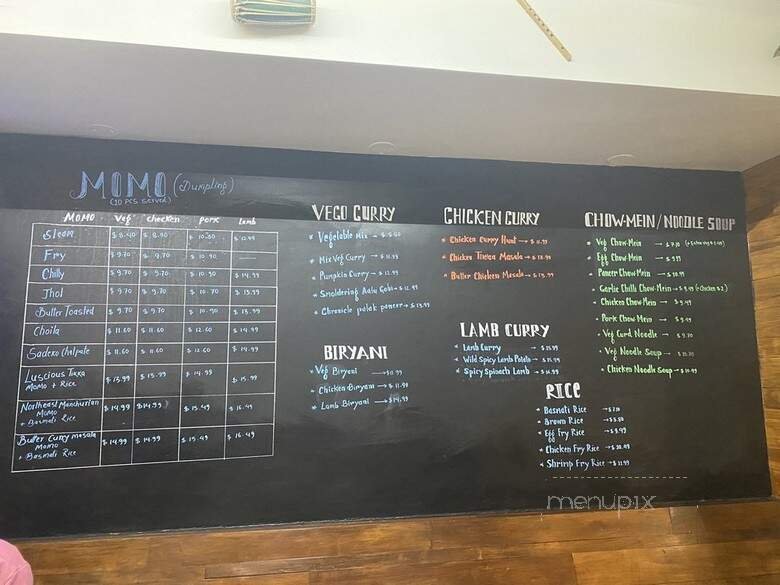 MOMO (Dumpling)
(10 PCS Served)
MOMO Veg Chicken Pork Lamb
Steam $8.40 $8.90 $10.50 $12.99
Fry $9.70 $9.70 $10.90
Chilly $9.70 $9.70 $10.90 $14.99
Jhol $9.70 $9.70 $10.70 $13.99
Butter Toasted $9.70 $9.70 $10.90 $13.99
Choila $11.60 $11.60 $12.60 $14.99
Sadeko Chatpate $11.60 $11.60 $12.60 $14.99
Luscious Tikka
Momo + Rice
$13.99 $13.99 $14.99 $15.99
Northeast Manchurian
Momo
+ Basmati Rice
$14.99 $14.99 $15.49 $16.49
Butter Curry Masala
Momo
+ Basmati Rice
$14.99 $14.99 $15.49 $16.49
VEGO CURRY
Vegetable Mix
Mix Veg Curry → $11.99
Pumpkin Curry → $12.99
Smoldering Aalu Gobi → $12.99
Chronicle palak paneer → $13.99
BIRYANI
Veg Biryani → $10.99
Chicken Biryani → $11.90
Lamb Biryani → $14.99
CHICKEN CURRY
Chicken Curry Hunt → $11.99
Chicken Tikka Masala → $13.99
Butter Chicken Masala → $13.99
LAMB CURRY
Lamb Curry → $15.99
Wild Spicy Lamb Potato → $15.99
Spicy Spinach Lamb → $16.99
RICE
Basmati Rice
Brown Rice → $3.50
Egg Fry Rice → $9.99
Chicken Fry Rice → $10.49
Shrimp Fry Rice → $11.99
CHOW-MEIN / NOODLE SOUP
Veg Chow-Mein → $9.70
Egg Chow Mein → $9.99
Paneer Chow Mein → $10.99
Garlic Chilli Chow-Mein → $9.49 (+Chicken $2)
Chicken Chow Mein → $9.49
Pork Chow Mein → $9.49
Veg Curd Noodle → $9.70
Veg Noodle Soup → $10.70
Chicken Noodle Soup → $10.99
menupix